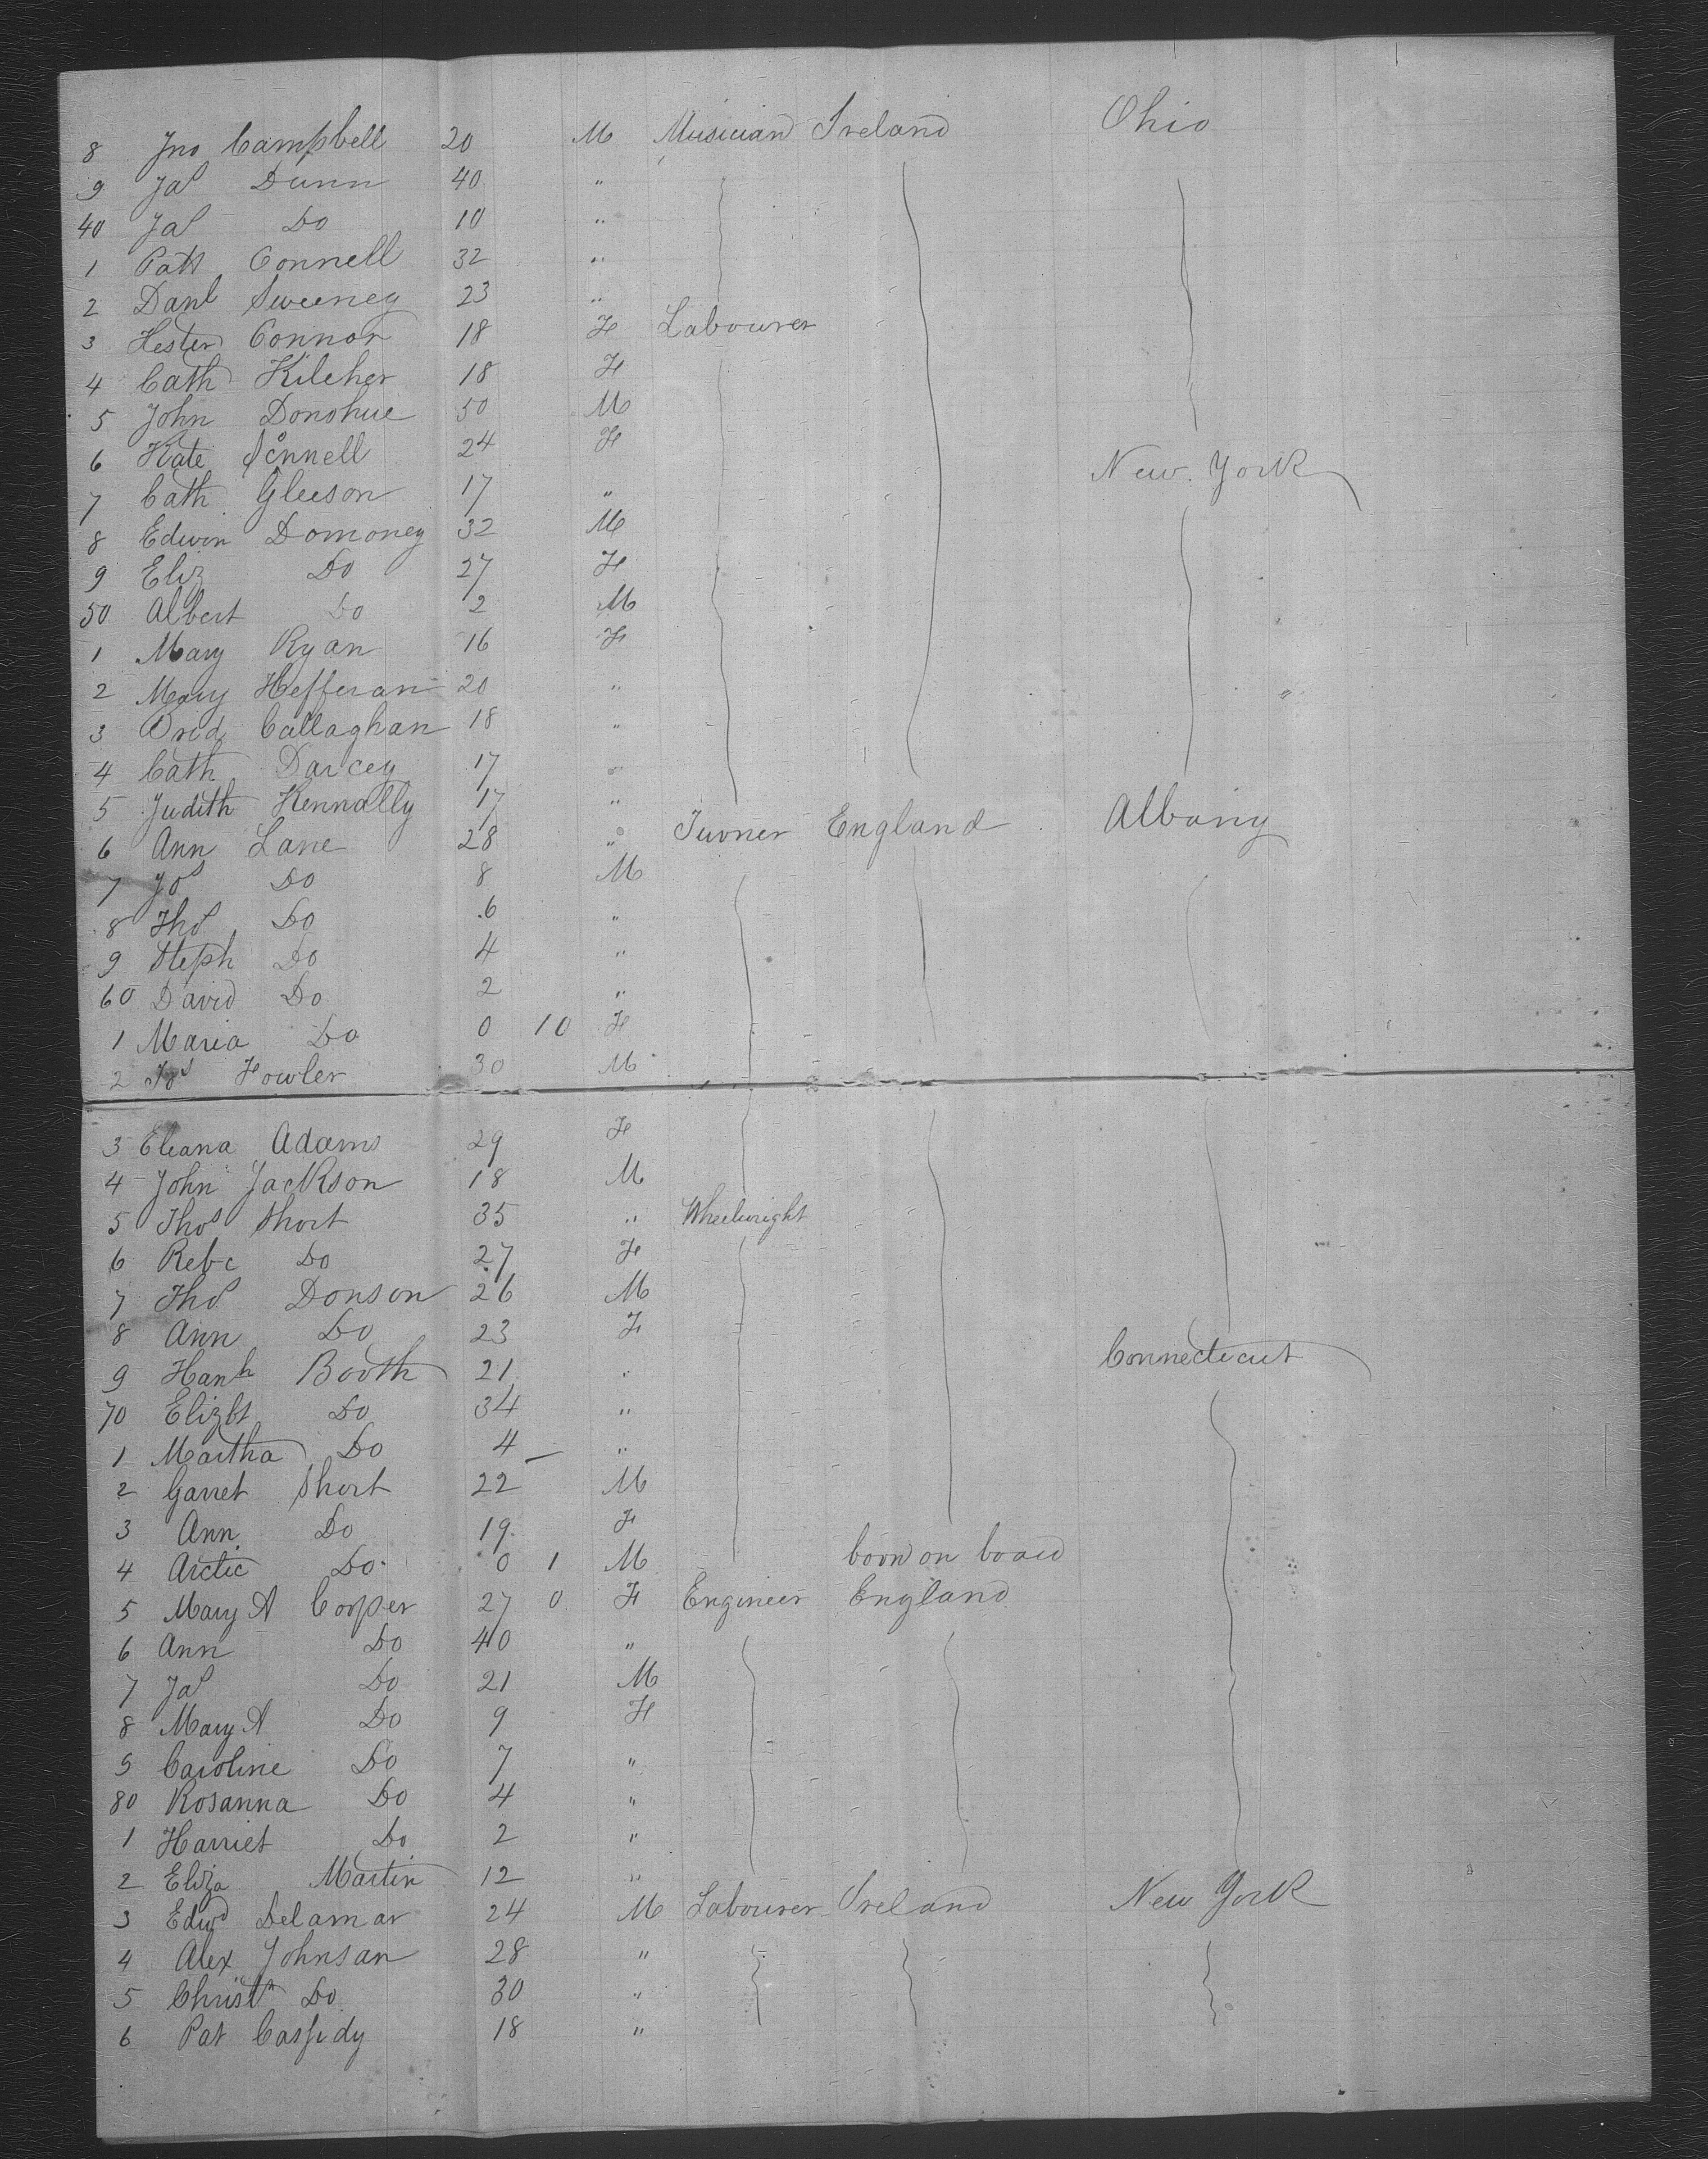 8 Jno Campbell 20 M Musician Ireland Ohio
9 Jas Dunn 40 "
40 Jas Do 10 "
1 Patk Connell 32 "
2 Danl Sweeney 23 "
3 Hester Connor 18 F Labourer
4 Cath Kilcher 18 F
5 John Donohue 50 M
6 Kate Connell 24 F New York
7 Cath Gleeson 17 "
8 Edwin Domoney 32 M
9 Eliz Do 27 F
50 Albert Do 2 M
1 Mary Ryan 16 F
2 Mary Hefferan 20 "
3 Brid Callaghan 18 "
4 Cath Darcey 17 "
5 Judith Kennally 17 "
6 Ann Lane 28 " Turner England Albany
7 Jos Do 8 M
8 Thos Do 6 "
9 Steph Do 4 "
60 David Do 2 "
1 Maria Do 0 10 F
2 Jos Fowler 30 M
3 Eleana Adams 29 F
4 John Jackson 18 M
5 Thos Short 35 " Wheelwright
6 Rebc Do 27 F
7 Thos Donson 26 M
8 Ann Do 23 F
9 Hanh Booth 21 " Connecticut
70 Elizbt Do 34 "
1 Martha Do 4 — "
2 Garret Short 22 M
3 Ann Do 19 F
4 Arctic Do 0 1 M born on board
5 Mary A Cooper 27 0 F Engineer England
6 Ann Do 40 "
7 Jas Do 21 M
8 Mary A Do 9 F
9 Caroline Do 7 "
80 Rosanna Do 4 "
1 Harriet Do 2 "
2 Eliza Martin 12 "
3 Edwd Delamar 24 M Labourer Ireland New York
4 Alex Johnsan 28 "
5 Christn Do 30 "
6 Pat Cassidy 18 "